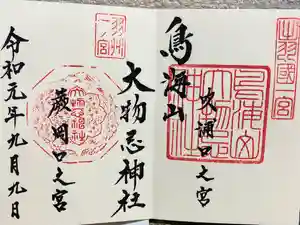 出羽國一宮
鳥海山
吹浦口之宮
羽州一ノ宮
大物忌神社
蕨岡口之宮
令和元年九月九日